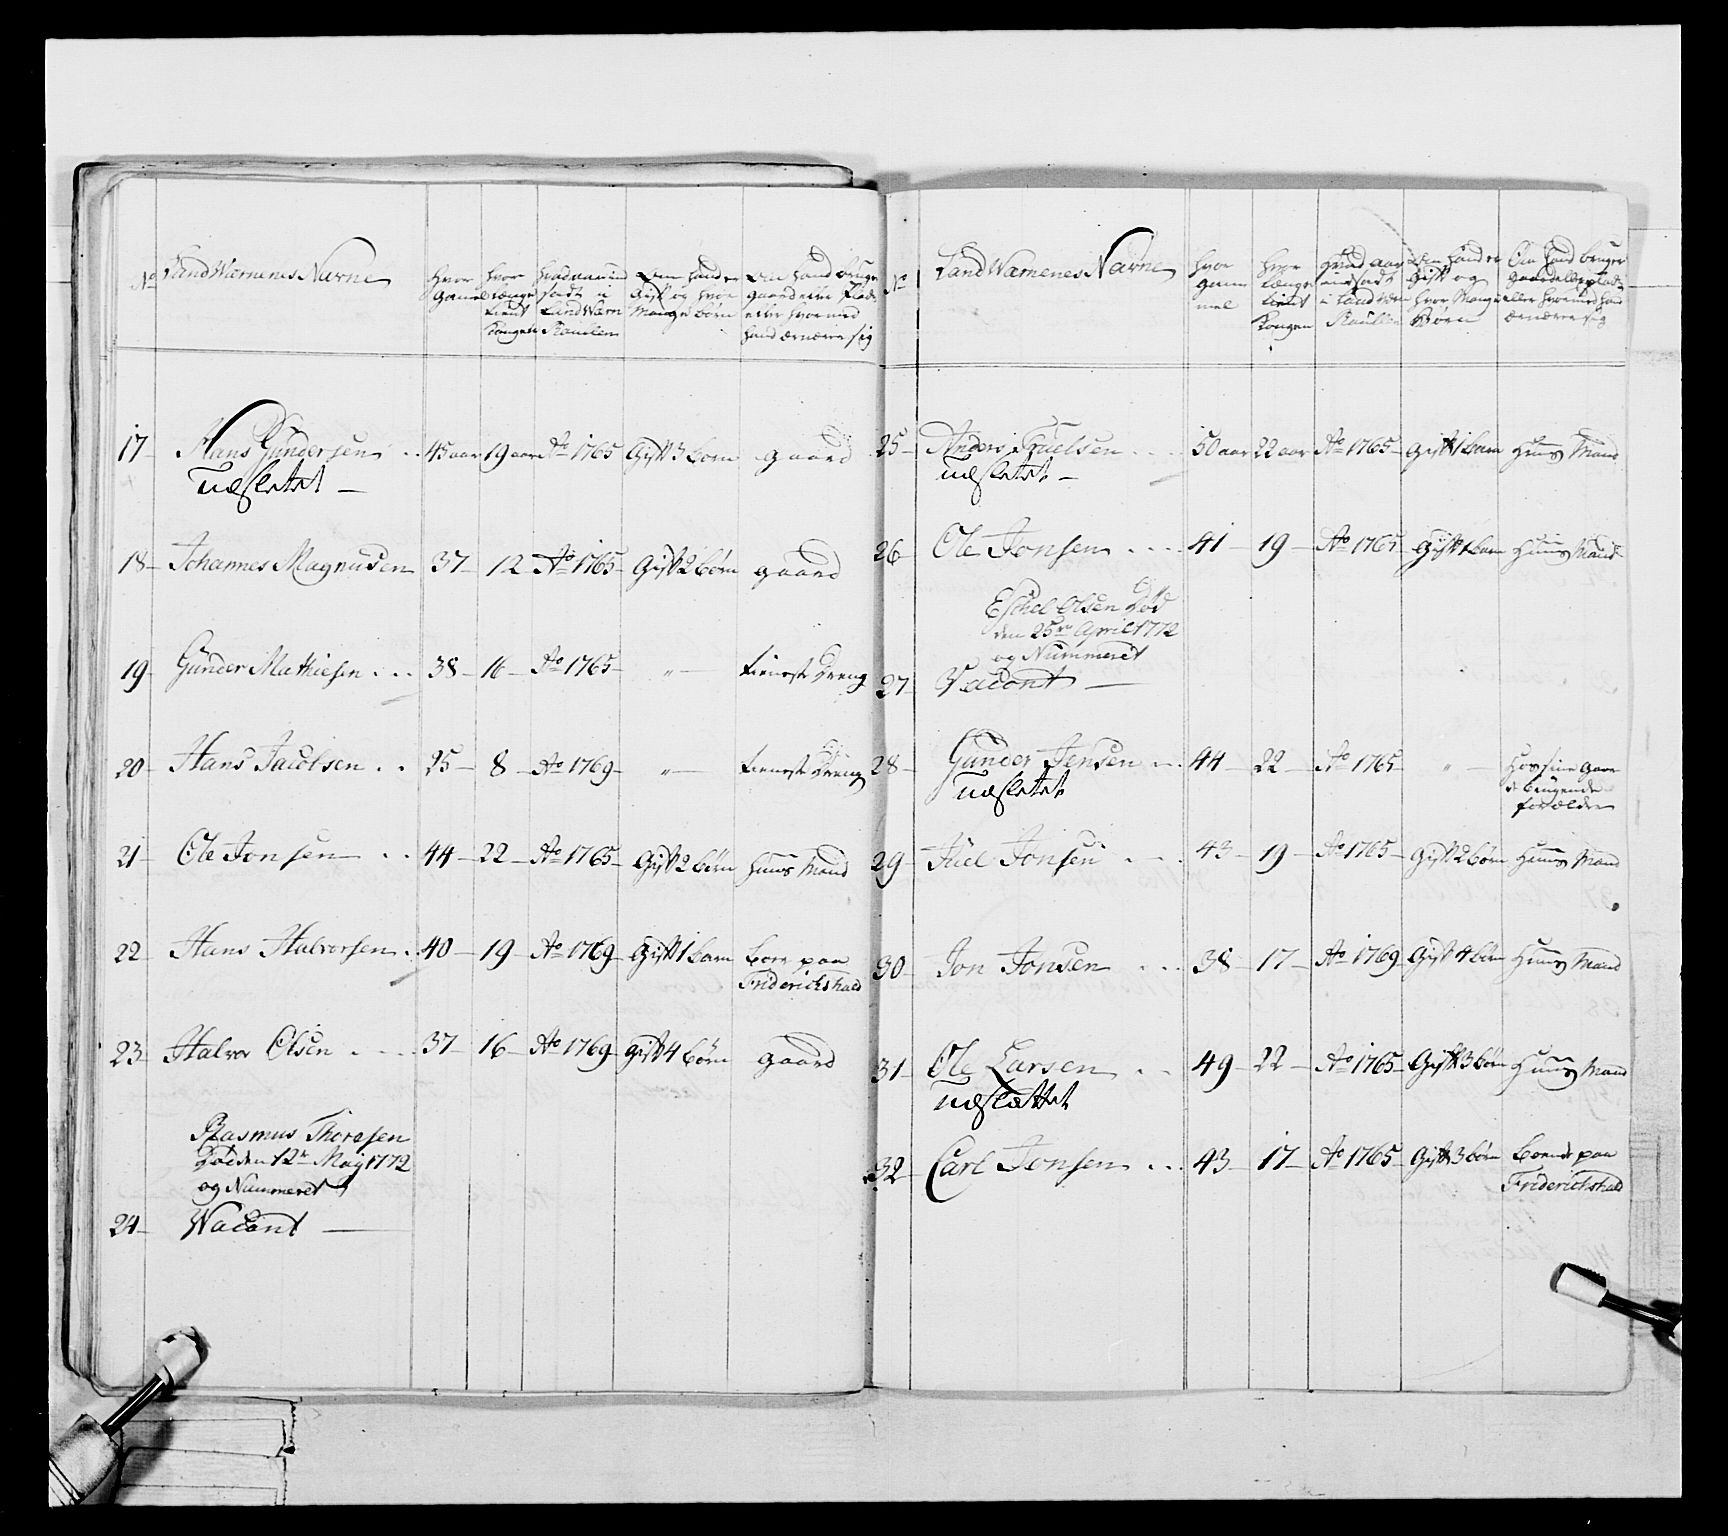 No
Land Wærnenes Navne
Hvor gamel
Hvor længe tient Kongen
Hvad aar ind sadt i Land Wærn Roullen
Om hand er Gift og hvor Mange børn
Om hand bruger gaard eller Plads eller hvormed hand ærnærer sig
17 Hans Gundersen 45 aar 19 aar Ao 1765 Gift 3 born gaard
udsletet
18 Johannes Magnusen 37 12 Ao 1765 Gift 2 børn gaard
19 Gunder Mathiesen 38 16 Ao 1765 " tieneste Dreng
20 Hans Jacobsen 25 8 Ao 1769 " tieneste Dreng
21 Ole Jonsen 44 22 Ao 1765 Gift 2 børn huus Mand
22 Hans Halvorsen 40 19 Ao 1769 Gift 1 barn boer paa
Friderichshald
23 Halvor Olsen 37 16 Ao 1769 gift 4 børn gaard
Rasmus Thoresen
Død den 12te Maij 1772
og Nummeret
24 Wacant
No
Land Wærnenes Navne
hvor gammel
hvor længe tient Kongen
Hvad aar indsadt i Land Wærn Roullen
Om hand er Gift og hvor Mange Børn
Om hand bruger gaard eller plads eller hvormed hand ærnærer sig
25 Anders Truelsen 50 aar 22 aar Ao 1765 gift 1 barn Huus Mand
udsletet
26 Ole Jonsen 41 19 Ao 1765 gift 1 barn Huus Mand
Eschel Olsen Død
den 25de April 1772
og Nummeret
27 Vacant
28 Gunder Jensen 44 22 Ao 1765 " Hos sine gaar
d brugende
forældre
udsletet
29 Juel Jonsen 43 19 Ao 1765 Gift 2 børn Huus Mand
30 Jon Jonsen 38 17 Ao 1769 Gift 4 børn Huus Mand
31 Ole Larsen 49 22 Ao 1765 Gift 3 børn Huus Mand
udslættet
32 Carl Jonsen 43 17 Ao 1765 Gift 3 børn boende paa
Friderichshald